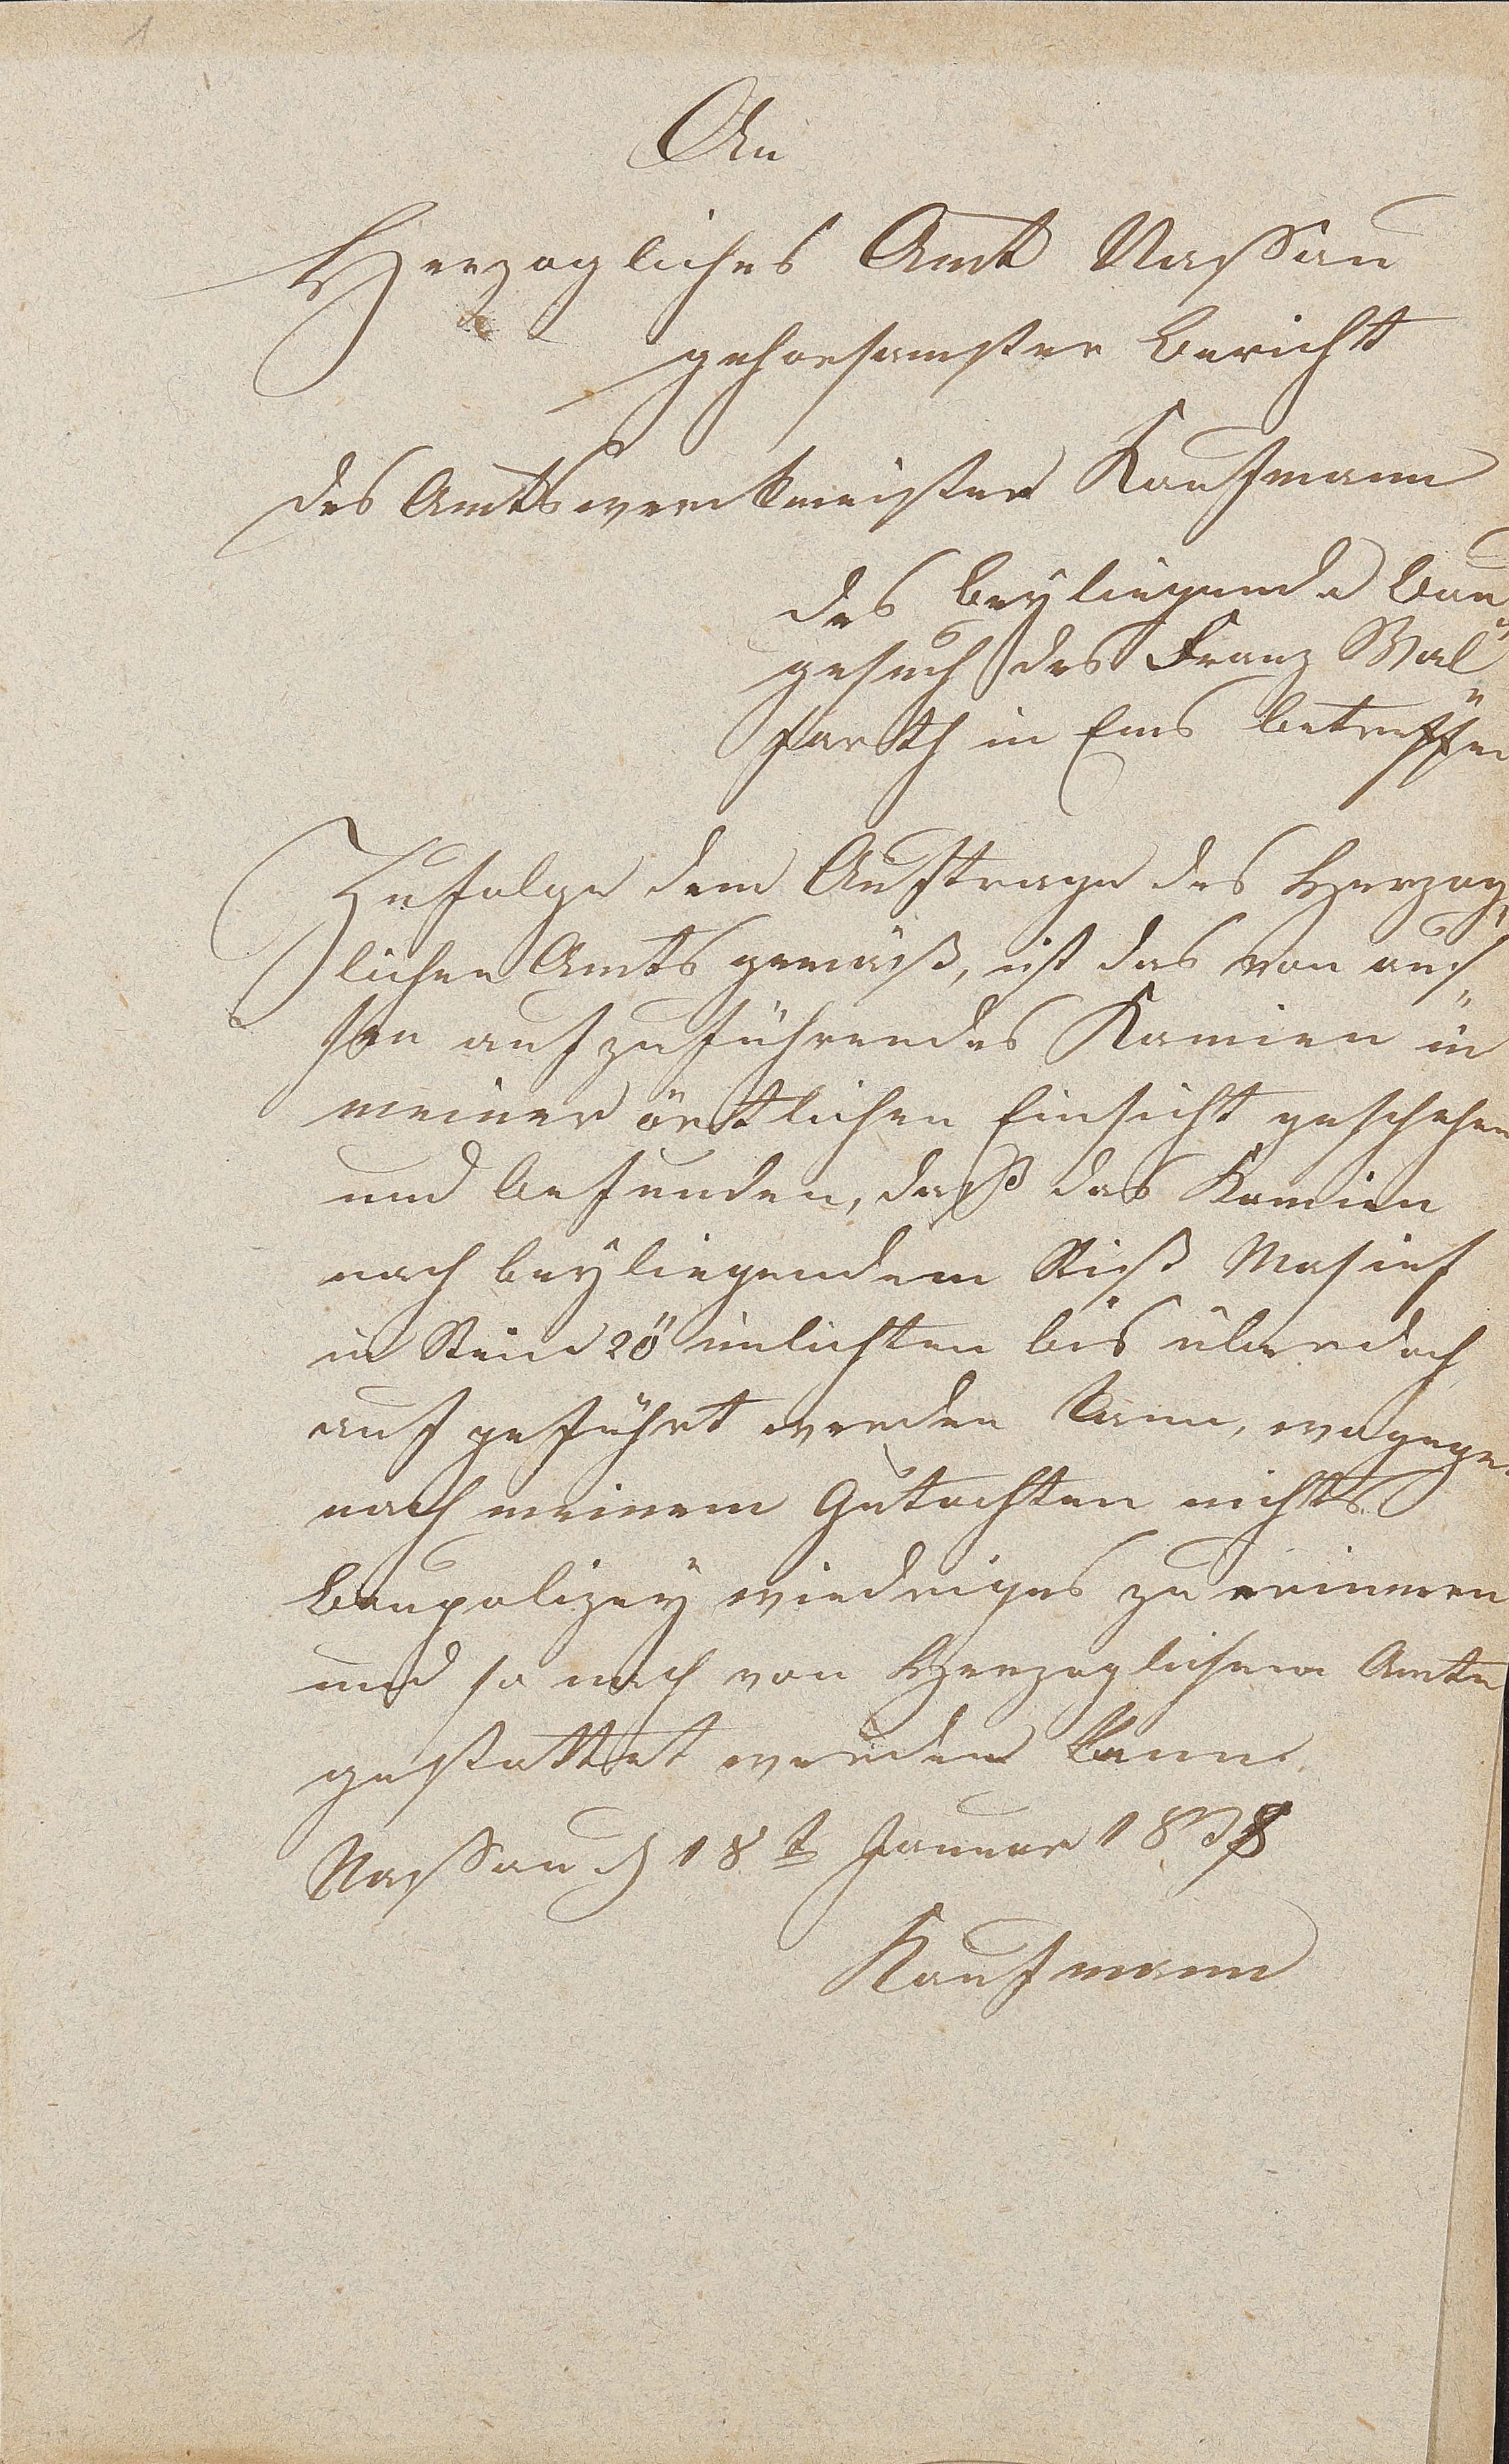 1
An
Herzogliches Amt Nassau
gehorsamster Bericht
des Amtswerckmeister Kaufmann
des beyliegende Bau„
gesuch des Franz Wal„
farth in Ems betreffen
Zufolge dem Auftrage des Herzog„
lichen Amts gemäß, ist das von aus„
sen aufzuführendes Kamien in
meiner örtlichen Einsicht geschehen
und befunden, daß das Kamien
nach beyliegendem Riß Masief
in Stein 20" imlichten bis überdach
aufgeführt werden kann, wogege
nach meinem Gutachten nichts
Baupolizey wiedriges zu erinnern
und so nach von Herzoglichem Amte
gestattet werden kann.
Nassau d 18t Januar 1838
Kaufmann